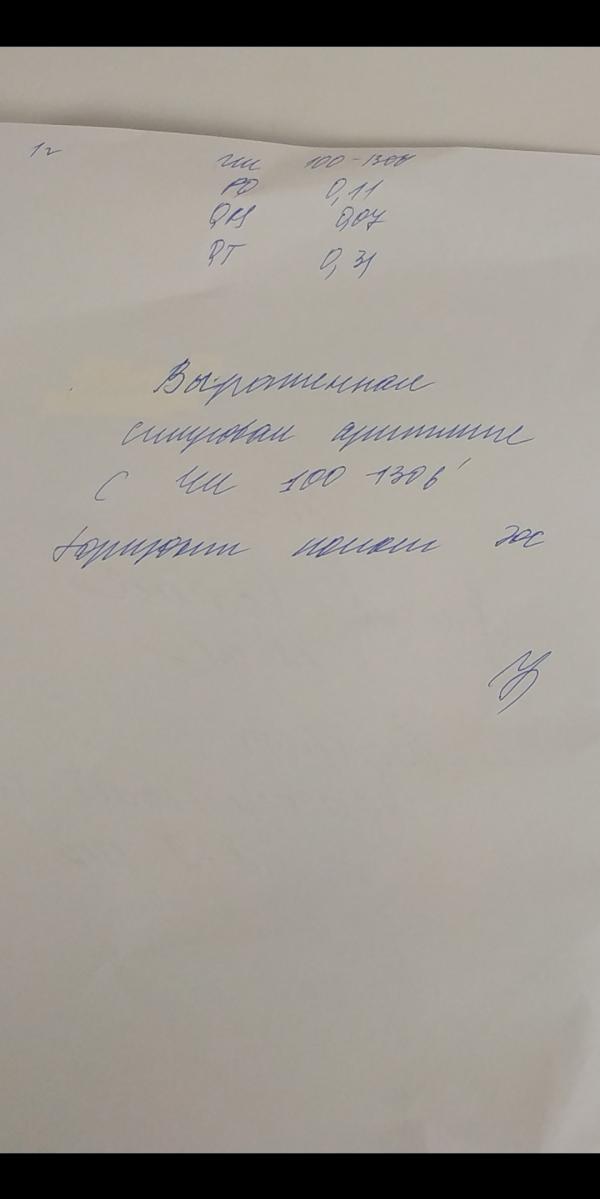 1г
ЧСС 100-130 в'
PQ 0,11
QRS 0,07
QT 0,31
Выраженная
синусовая аритмия
с ЧСС 100 130 в'
Горизонт полож ЭОС